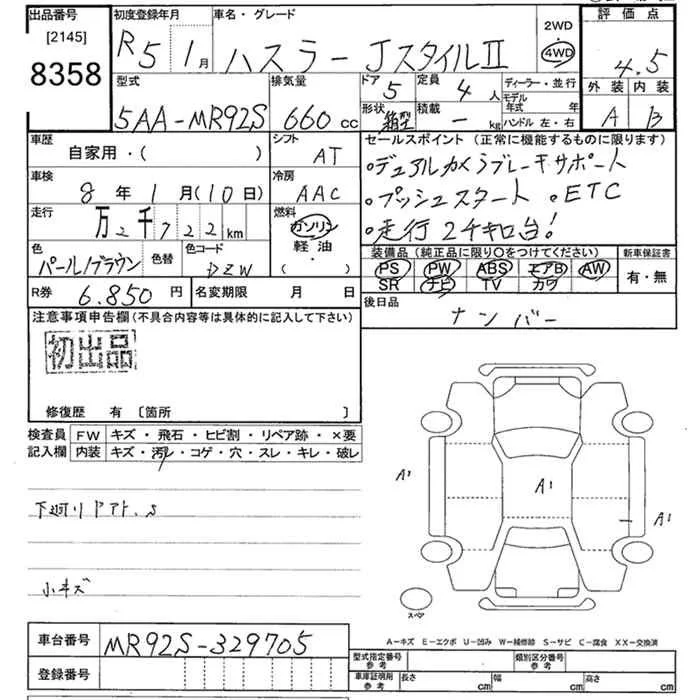 出品番号 初度登録年月 車名・グレード 2WD 評価点
[2145] R5 1月 ハスラー JスタイルⅡ 4WD 4.5
8358 型式 排気量 ドア 定員 ディーラー・並行 外装 内装
5AA-MR92S 660cc 5 4人 モデル年式 年 A B
形状 箱型 積載 - kg ハンドル 左・右
車歴 シフト セールスポイント(正常に機能するものに限ります)
自家用・( ) AT •デュアルカメラブレーキサポート
車検 冷房 •プッシュスタート •ETC
8年1月(10日) AAC •走行2千キロ台!
走行 燃料
万2千722km ガソリン
軽油・( )
色 色替 色コード 装備品(純正品に限り○をつけてください) 新車保証書
パール/ブラウン DZW PS PW ABS エアB AW 有・無
SR ナビ TV カワ
R券 6.850円 名変期限 月 日 後日品
ナンバー
注意事項申告欄(不具合内容等は具体的に記入して下さい)
初出品
修復歴 有 [箇所 ]
検査員 FW キズ・飛石・ヒビ割・リペア跡・×要
記入欄 内装 キズ・汚レ・コゲ・穴・スレ・キレ・破レ
A1 A1 A1
下廻り ドアト.S
小キズ
スペア
A-キズ E-エクボ U-凹み W-補修跡 S-サビ C-腐食 XX-交換済
車台番号 MR92S-329705
登録番号
型式指定番号 参考 類別区分番号 参考
車庫証明用 参考 長さ cm 幅 cm 高さ cm